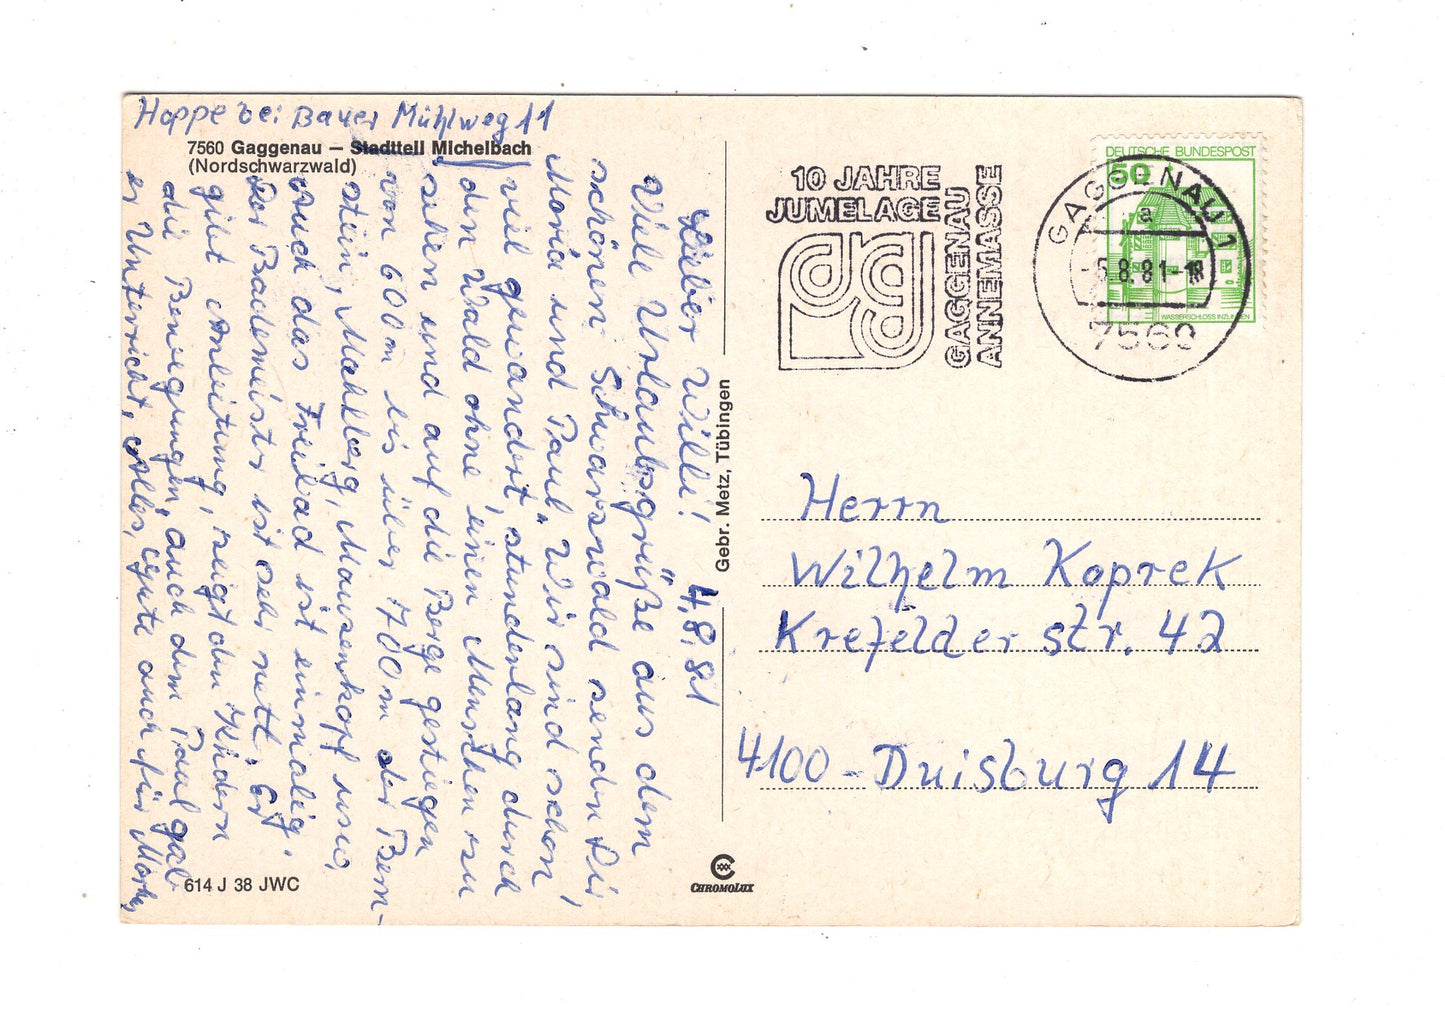 Hoppe bei Bauer Mühlweg 11
7560 Gaggenau – Stadtteil Michelbach
(Nordschwarzwald)
4.8.81
Lieber Willi!
Viele Urlaubsgrüße aus dem
schönen Schwarzwald senden Dir,
Maria und Paul. Wir sind schon
viel gewandert, stundenlang durch
den Wald ohne einen Menschen zu
sehen und auf die Berge gestiegen
von 600m bis über 700m der Bern-
stein, Mahlberg, Mauzenkopf usw,
Auch das Freibad ist einmalig.
Der Bademeister ist sehr nett. Er
gibt Anleitung, zeigt den Kindern
die Bewegungen, auch dem Paul gab
er Unterricht. Alles Gute auch für
614 J 38 JWC
Gebr. Metz, Tübingen
CHROMOLUX
10 JAHRE
JUMELAGE
GAGGENAU
ANNEMASSE
GAGGENAU 1
a
-5.8.81-18
7560
DEUTSCHE BUNDESPOST
50
WASSERSCHLOSS INZLINGEN
Herrn
Wilhelm Koprek
Krefelder Str. 42
4100 – Duisburg 14